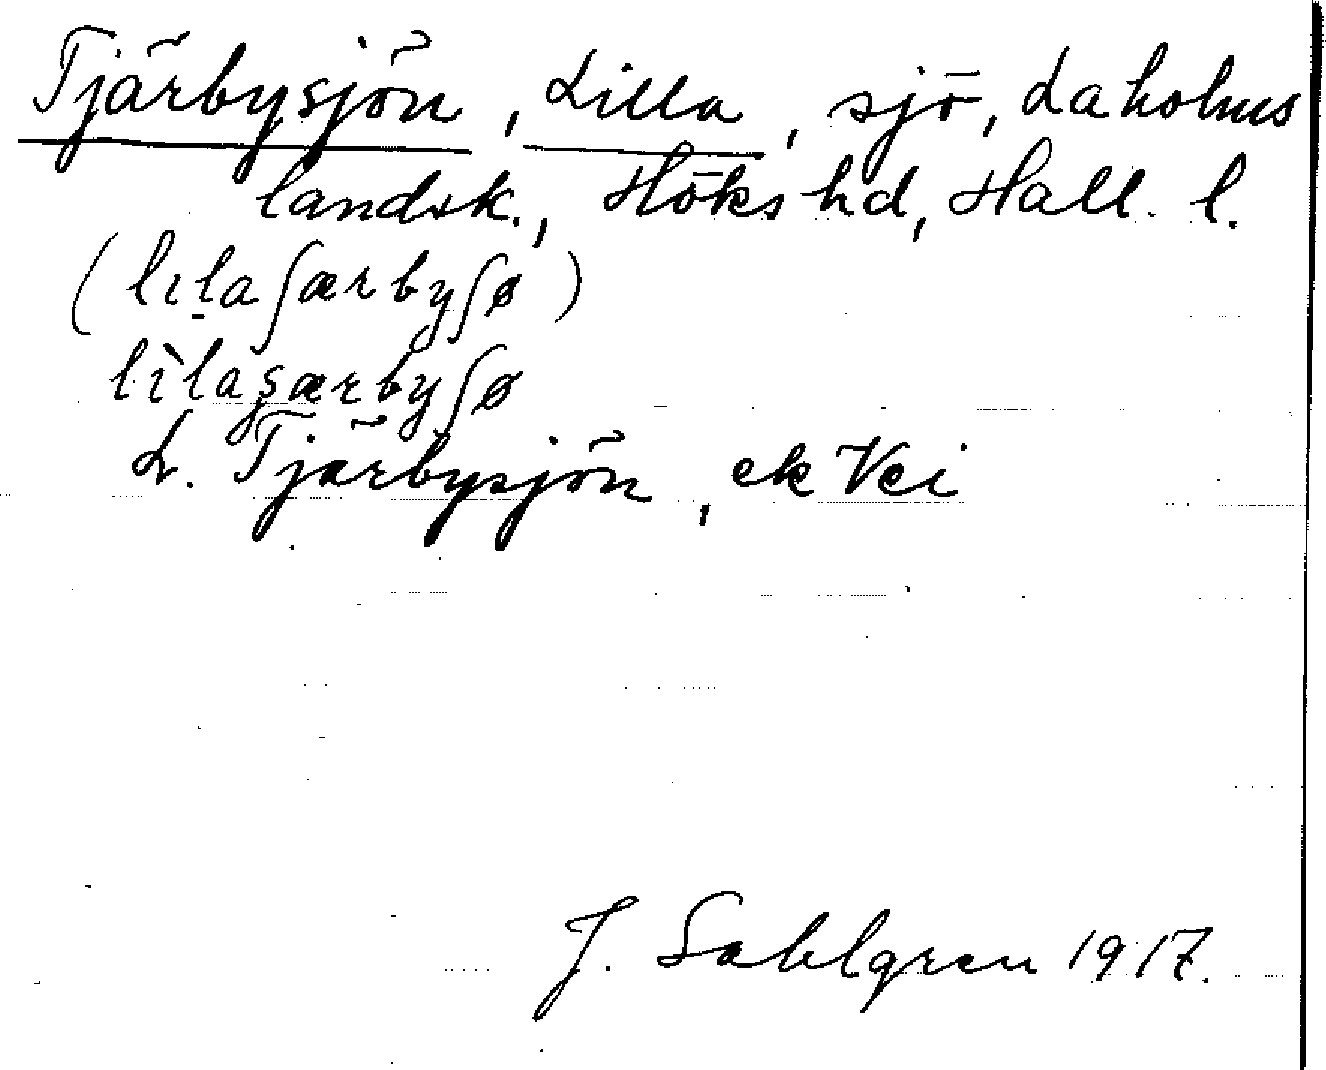 Tjärbysjön, Lilla, sjö, Laholms
landsk., Höks hd, Hall. l.
(lılaʃærbyʃø)
lìlaʂærbyʃø
L. Tjärbysjön, ek Vei
J. Sahlgren 1917.